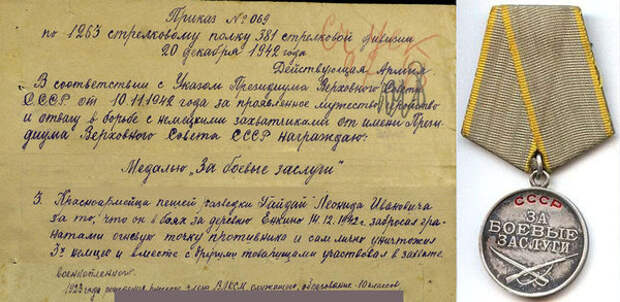 Приказ № 069
по 1263 стрелковому полку 381 стрелковой дивизии
20 декабря 1942 года
Действующая Армия
В соответствии с Указом Президиума Верховного Совета
СССР от 10.11.1942 года за проявленное мужество
и отвагу в борьбе с немецкими захватчиками от имени Прези-
диума Верховного Совета СССР награждаю:
Медалью „За боевые заслуги"
3. Красноармейца пешей разведки Гайдай Леонида Иововича
за то, что он в боях за деревню Енкино 14.12.1942г. забросал гра-
натами огневую точку противника и сам лично уничтожил
3х немцев и вместе с другими товарищами участвовал в захвате
военнопленных.
1923 года рождения, член ВЛКСМ, служащий, образование - 10 классов
СССР
ЗА
БОЕВЫЕ
ЗАСЛУГИ